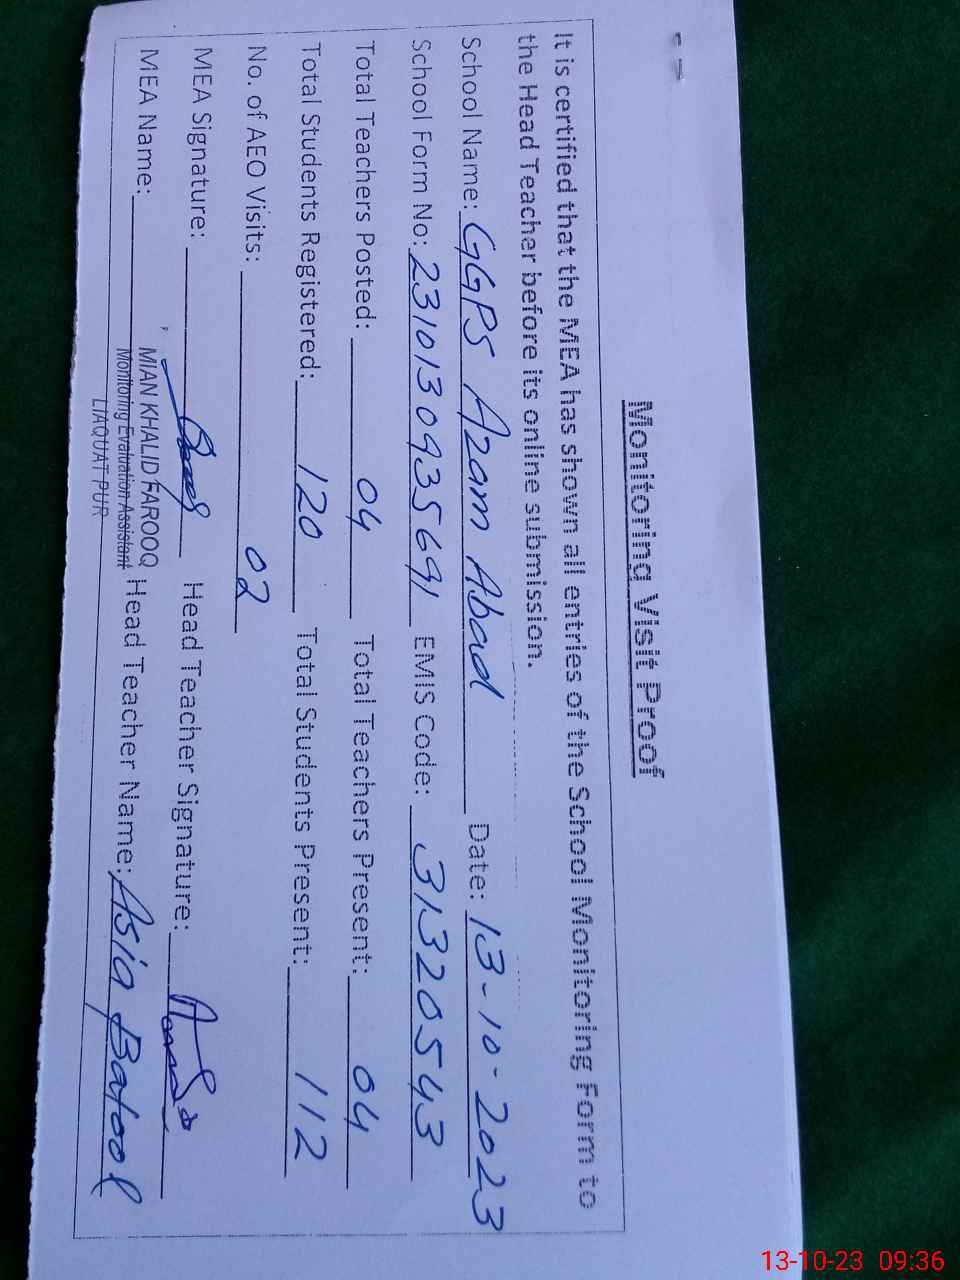 Monitoring Visit Proof
It is certified that the MEA has shown all entries of the School Monitoring Form to
the Head Teacher before its online submission.
School Name: GGPS Azam Abad Date: 13-10-2023
School Form No: 23101309935691 EMIS Code: 31320543
Total Teachers Posted: 04 Total Teachers Present: 04
Total Students Registered: 120 Total Students Present: 112
No. of AEO Visits: 02
MEA Signature: Head Teacher Signature:
MEA Name: MIAN KHALID FAROOQ Head Teacher Name: Asia Batool
Monitoring Evaluation Assistant
LIAQUAT PUR
13-10-23 09:36